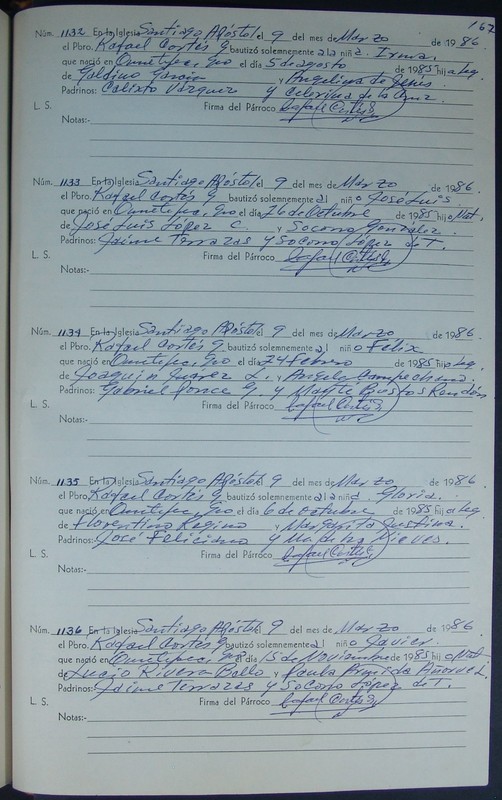 162
Núm. 1132 En la Iglesia Santiago Apóstol el 9 del mes de Marzo de 1986.
el Pbro. Rafael Cortés G. bautizó solemnemente a la niña. Irma.
que nació en Ometepec, Gro el día 5 de agosto de 1985 hija Leg.
de Galdino García y Angelina de Jesús.
Padrinos: Calixto Vázquez y Celerina de la Cruz.
L. S. Firma del Párroco Rafael Cortés G.
Notas:-
Núm. 1133 En la Iglesia Santiago Apóstol el 9 del mes de Marzo de 1986.
el Pbro. Rafael Cortés G. bautizó solemnemente al niño José Luis
que nació en Ometepec, Gro el día 26 de Octubre de 1985 hijo Nat.
de José Luis López C. y Socorro González.
Padrinos: Jaime Terrazas y Socorro López de T.
L. S. Firma del Párroco Rafael Cortés G.
Notas:-
Núm. 1134 En la Iglesia Santiago Apóstol el 9 del mes de Marzo de 1986.
el Pbro. Rafael Cortés G. bautizó solemnemente al niño Félix
que nació en Ometepec, Gro el día 24 Febrero de 1985 hijo Leg.
de Joaquín Juárez L. y Angela Campechano.
Padrinos: Gabriel Ponce G. y Bustos Rendón
L. S. Firma del Párroco Rafael Cortés G.
Notas:-
Núm. 1135 En la Iglesia Santiago Apóstol el 9 del mes de Marzo de 1986.
el Pbro. Rafael Cortés G. bautizó solemnemente a la niña Gloria.
que nació en Ometepec, Gro el día 6 de octubre de 1985 hija Leg.
de Florentino Regino y Margarita Justina.
Padrinos: José Feliciano y Ma. de las Nieves.
L. S. Firma del Párroco Rafael Cortés G.
Notas:-
Núm. 1136 En la Iglesia Santiago Apóstol el 9 del mes de Marzo de 1986.
el Pbro. Rafael Cortés G. bautizó solemnemente al niño Javier.
que nació en Ometepec, Gro el día 15 de Noviembre de 1985 hijo Nat
de Lucio Rivera Bello y Paula Añorve L.
Padrinos: Jaime Terrazas y Socorro López de T.
L. S. Firma del Párroco Rafael Cortés G.
Notas:-